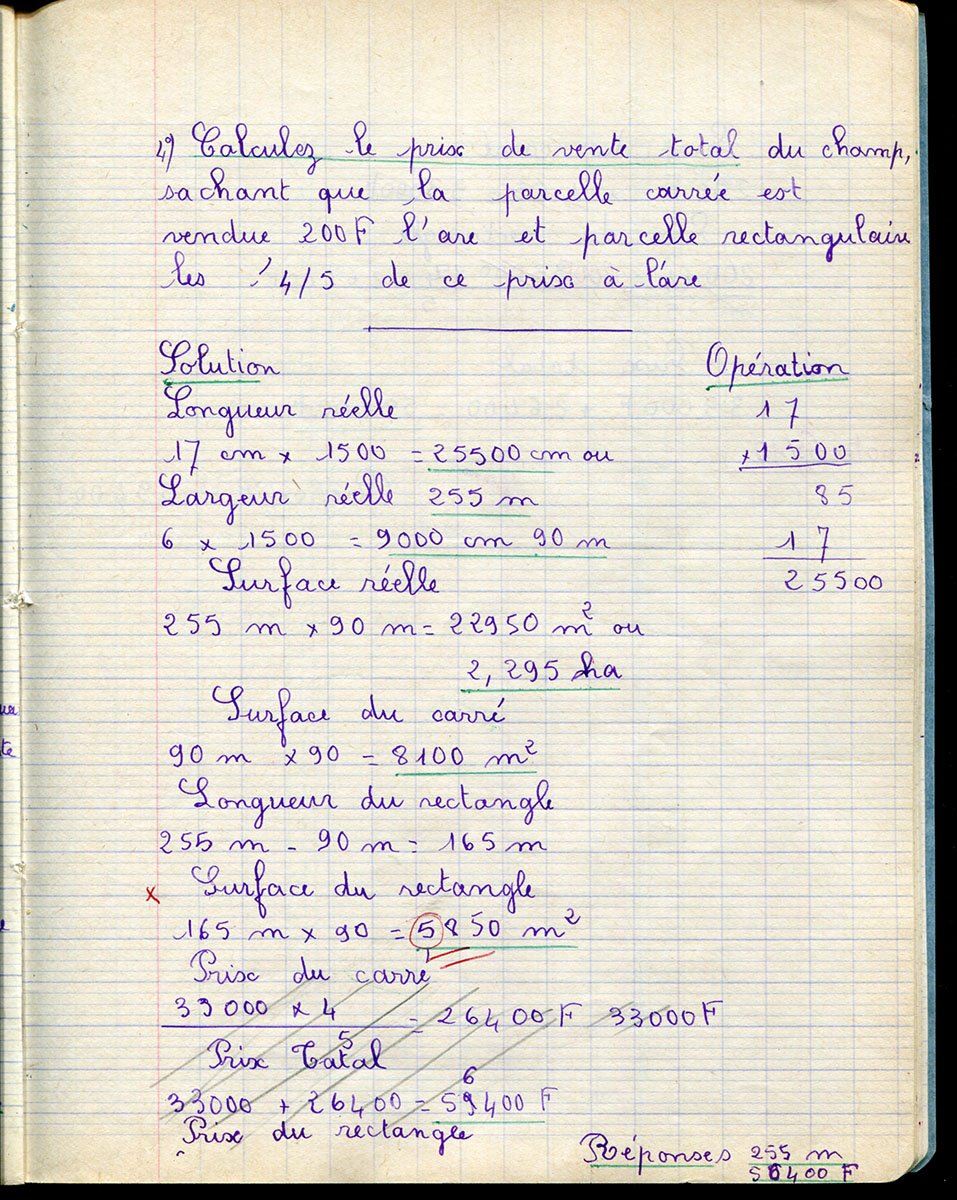 4°) Calculez le prix de vente total du champ,
sachant que la parcelle carrée est
vendue 200F l'are et parcelle rectangulaire
les 4/5 de ce prix à l'are
Solution
Opération
Longueur réelle
17
17 cm x 1500 = 25500 cm ou
x 1500
Largeur réelle 255 m
85
6 x 1500 = 9000 cm 90 m
17
Surface réelle
25500
255 m x 90 m = 22950 m² ou
2,295 ha
Surface du carré
90 m x 90 = 8100 m²
Longueur du rectangle
255 m - 90 m = 165 m
x Surface du rectangle
165 m x 90 = 5850 m²
Prix du carré
33000 x 4 / 5 = 26400 F 33000 F
Prix Total
33000 + 26400 = 59400 F
6
Prix du rectangle
Réponses 255 m
400 F